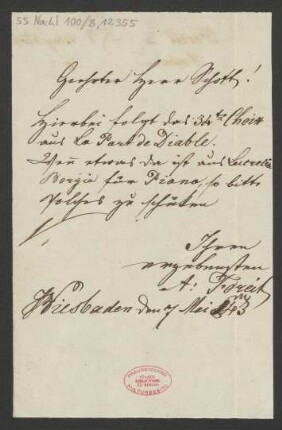 55 Nachl 100/B, 12355
Geehrter Herr Schott!
Hierbei folgt das 3te Choix
aus La Part de Diable.
Wenn etwas da ist aus Lucrecia
Borgia für Piano, so bitte
Solches zu schicken
Ihren
ergebensten
A:
Wiesbaden den 7 Mai 43